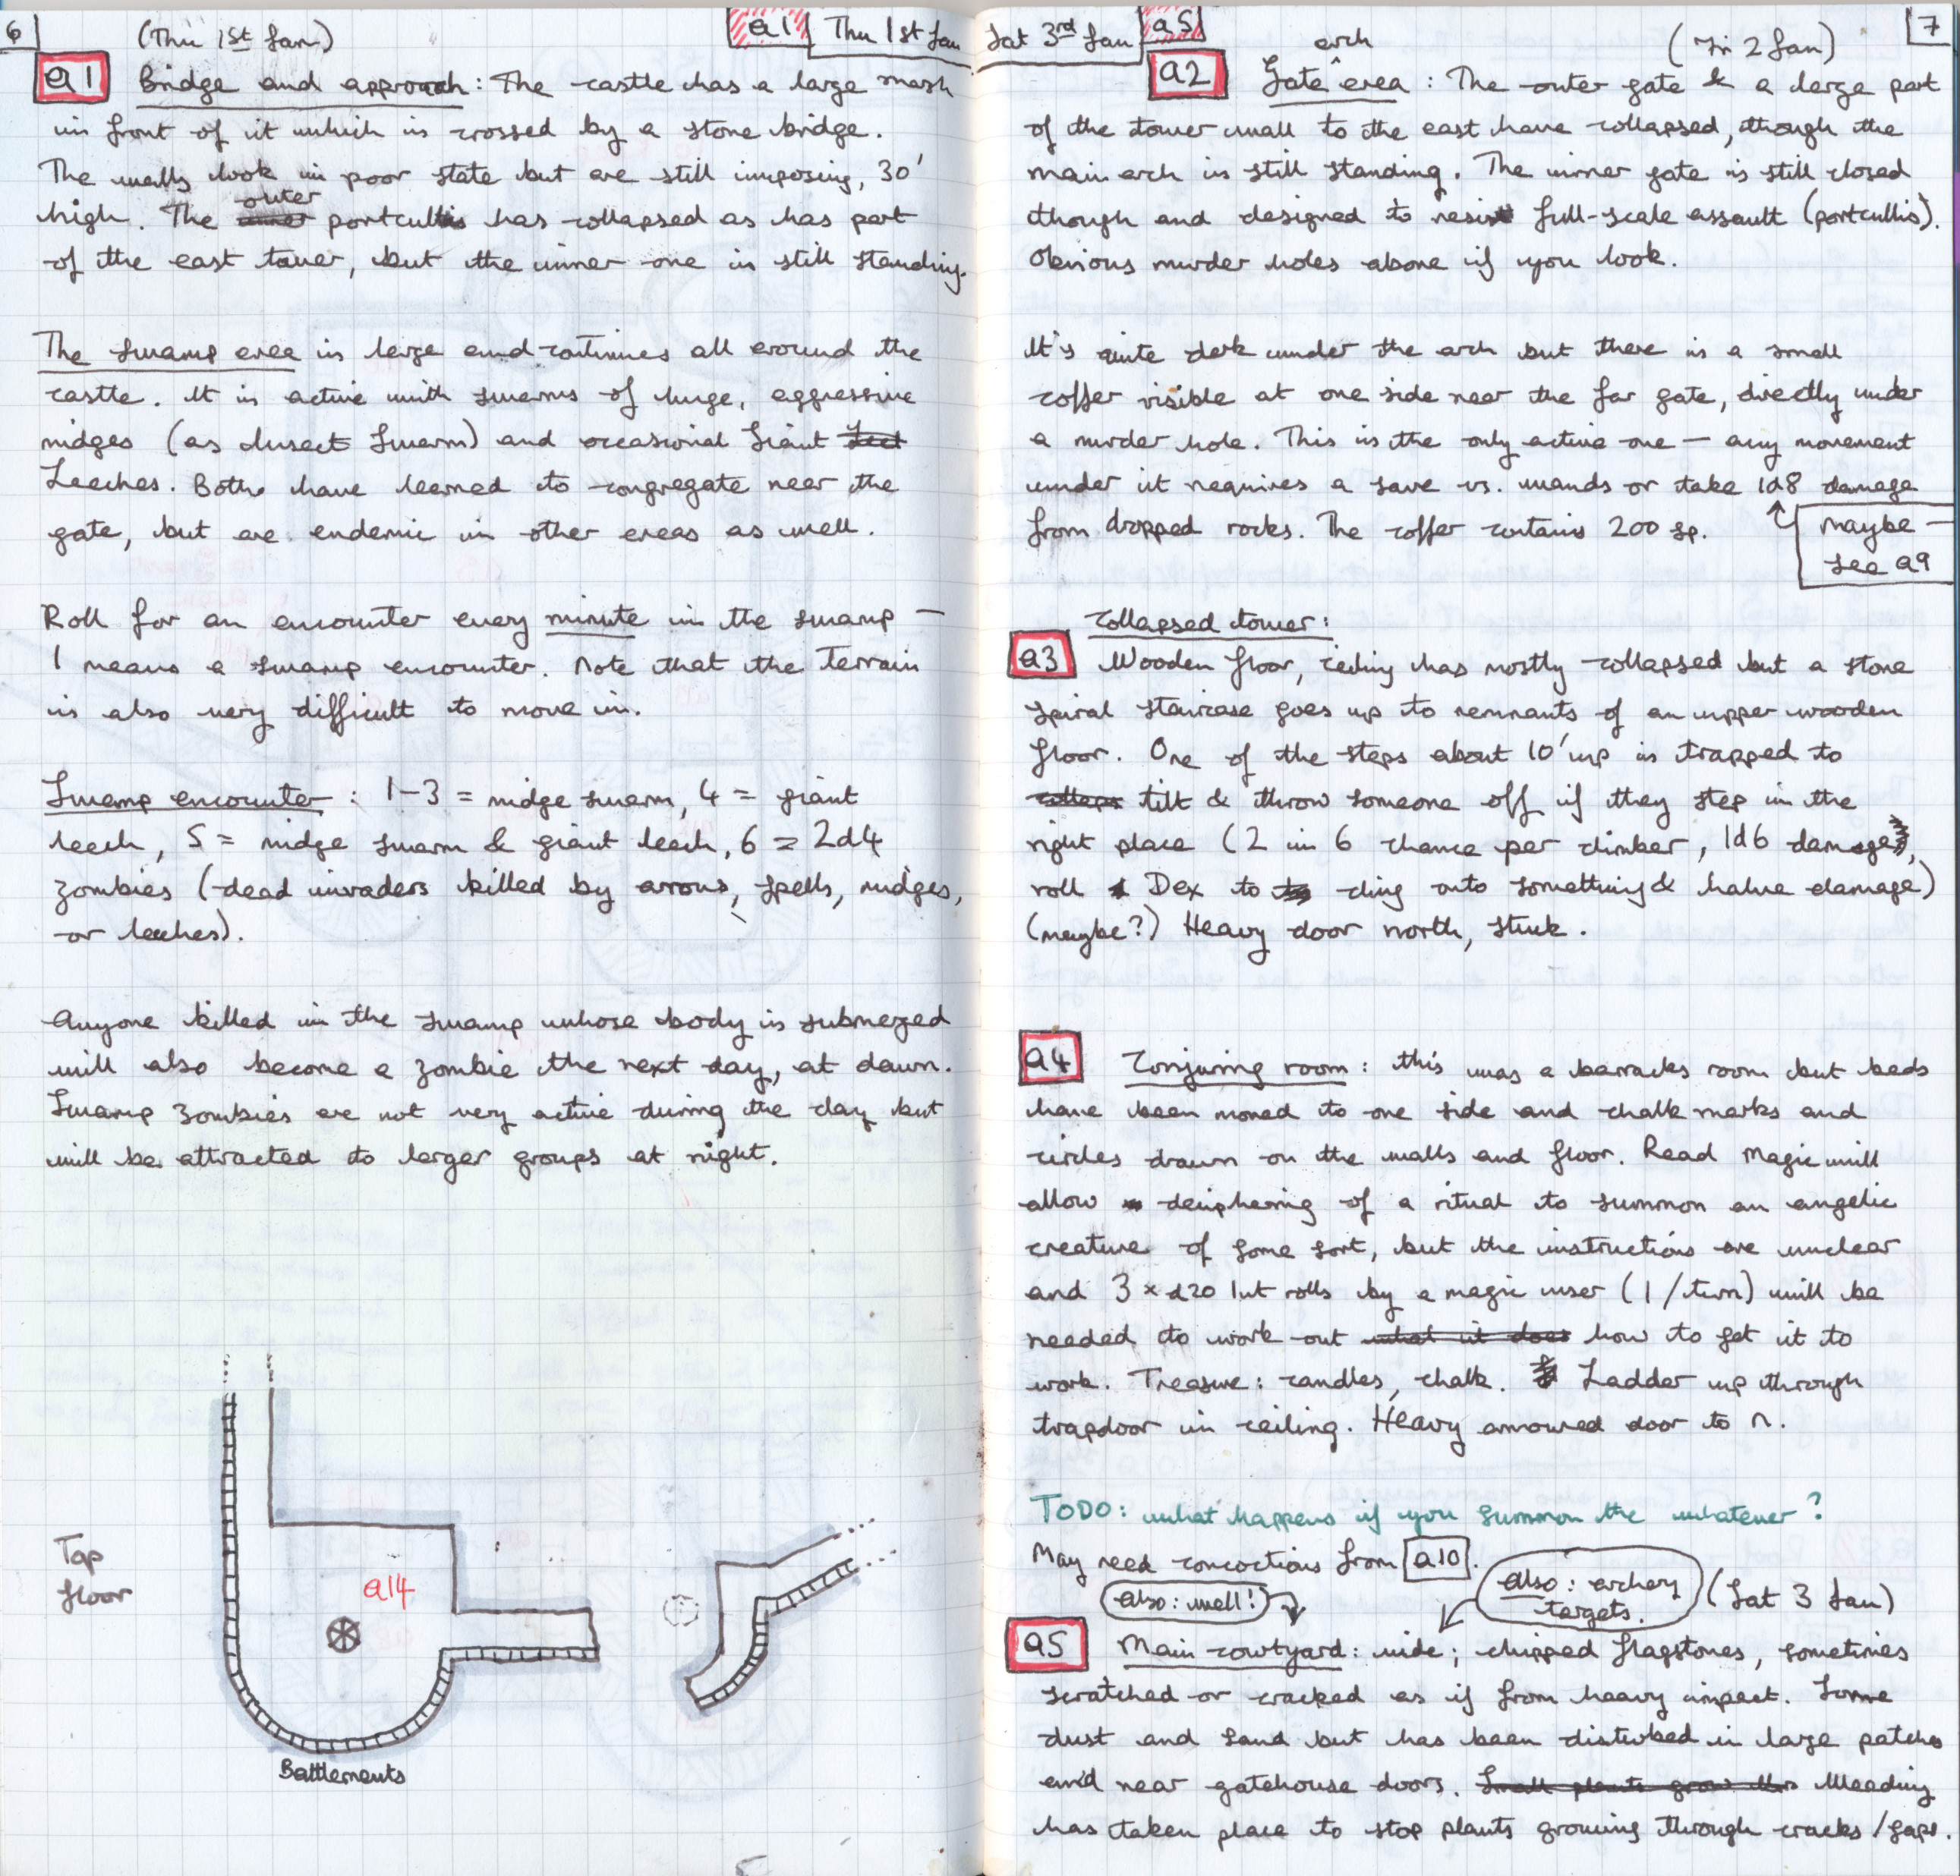 6
(Thu 1st Jan)
a1 Thu 1st Jan
a1 Bridge and approach: The castle has a large marsh
in front of it which is crossed by a stone bridge.
The walls look in poor state but are still imposing, 30'
high. The outer portcullis has collapsed as has part
of the east tower, but the inner one is still standing.
The swamp area is large and continues all around the
castle. It is active with swarms of huge, aggressive
midges (as Insect Swarm) and occasional Giant
Leeches. Both have learned to congregate near the
gate, but are endemic in other areas as well.
Roll for an encounter every minute in the swamp –
1 means a swamp encounter. Note that the terrain
is also very difficult to move in.
Swamp encounter: 1-3 = midge swarm, 4 = giant
leech, 5 = midge swarm & giant leech, 6 = 2d4
zombies (dead invaders killed by arrows, spells, midges,
or leeches).
Anyone killed in the swamp whose body is submerged
will also become a zombie the next day, at dawn.
Swamp zombies are not very active during the day but
will be attracted to larger groups at night.
Top
floor
a14
Battlements
Sat 3rd Jan a5
7
(Fri 2 Jan)
a2 Gate arch area: The outer gate & a large part
of the tower wall to the east have collapsed, though the
main arch is still standing. The inner gate is still closed
though and designed to resist full-scale assault (portcullis).
Obvious murder holes above if you look.
It's quite dark under the arch but there is a small
coffer visible at one side near the far gate, directly under
a murder hole. This is the only active one – any movement
under it requires a save vs. wands or take 1d8 damage
from dropped rocks. The coffer contains 200 sp.
maybe –
see a9
Collapsed tower:
a3 Wooden floor, ceiling has mostly collapsed but a stone
spiral staircase goes up to remnants of an upper wooden
floor. One of the steps about 10' up is trapped to
collapse tilt & throw someone off if they step in the
right place (2 in 6 chance per climber, 1d6 damage,
roll Dex to cling onto something & halve damage)
(maybe?) Heavy door north, stuck.
a4 Conjuring room: this was a barracks room but beds
have been moved to one side and chalk marks and
circles drawn on the walls and floor. Read Magic will
allow deciphering of a ritual to summon an angelic
creature of some sort, but the instructions are unclear
and 3 x d20 Int rolls by a magic user (1/turn) will be
needed to work out what it does how to get it to
work. Treasure: candles, chalk. Ladder up through
trapdoor in ceiling. Heavy armoured door to n.
TODO: what happens if you summon the whatever?
May need concoctions from a10.
also: well!
also: archery
targets.
(Sat 3 Jan)
a5 Main courtyard: wide; chipped flagstones, sometimes
scratched or cracked as if from heavy impact. Some
dust and sand but has been disturbed in large patches
and near gatehouse doors. Small plants grow Weeding
has taken place to stop plants growing through cracks/gaps.